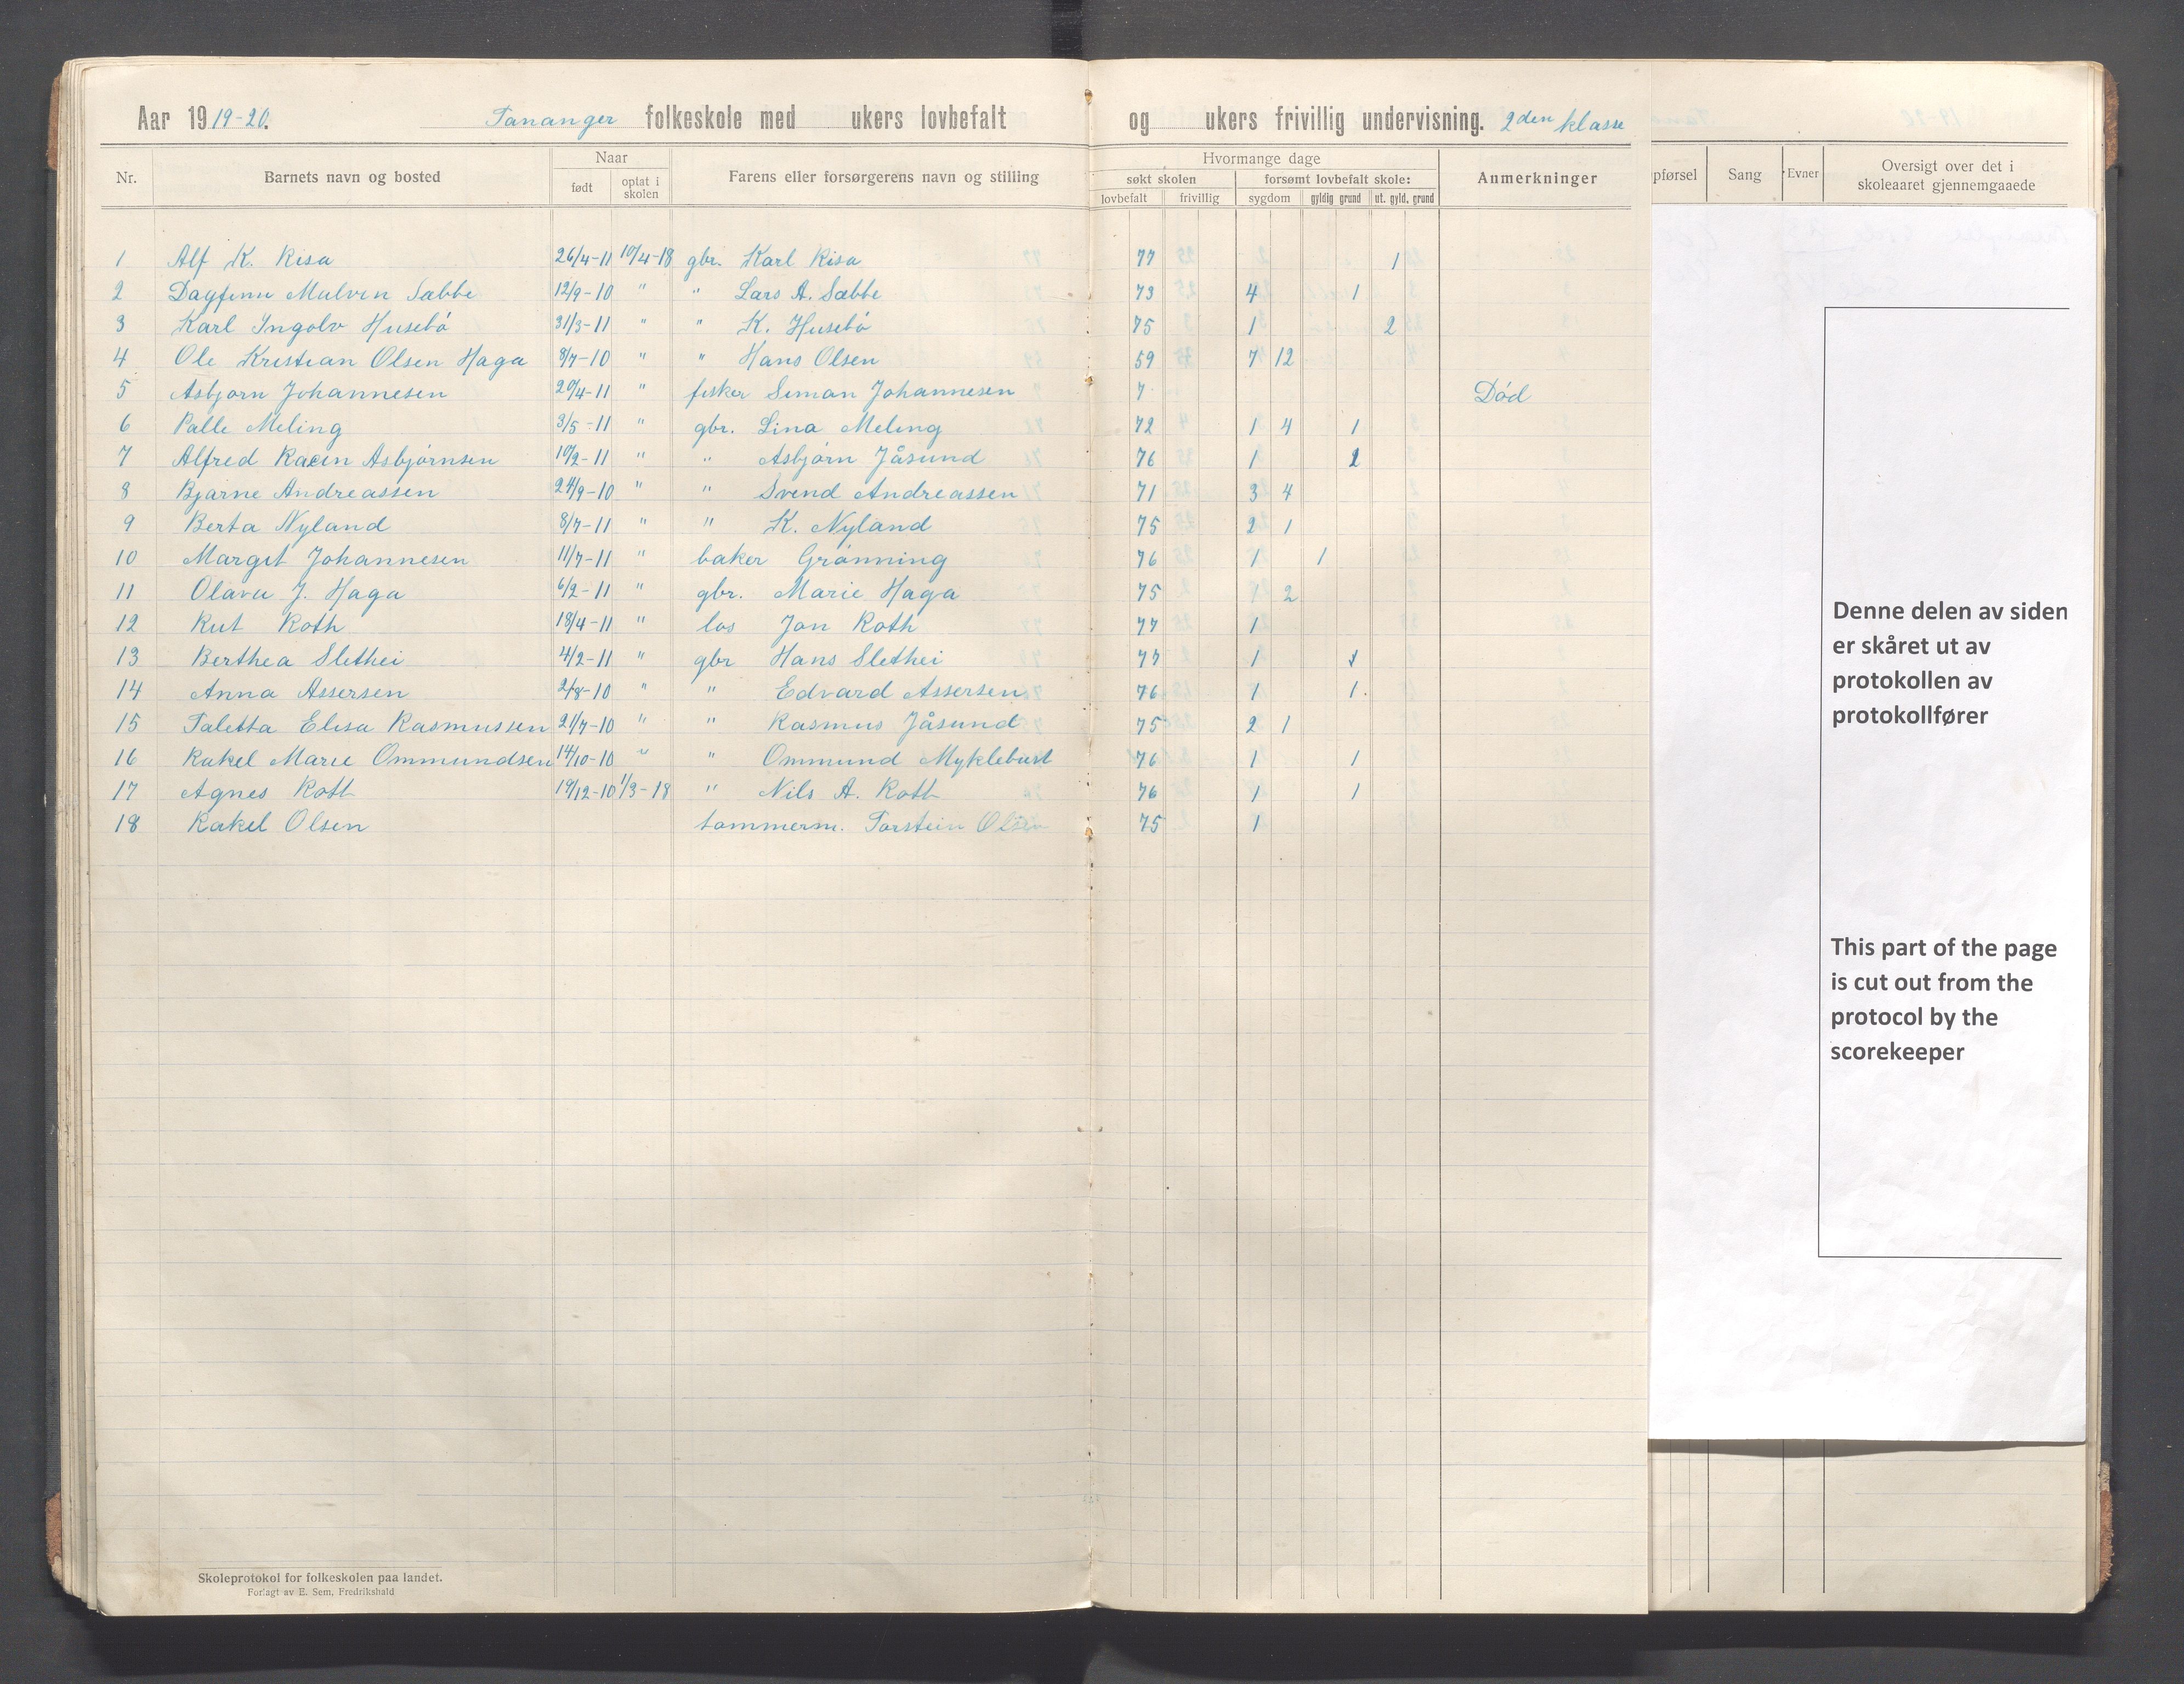 Aar 1919-20. Tananger folkeskole med ukers lovbefalt og ukers frivillig undervisning. 2den klasse
Nr. Barnets navn og bosted Naar født optat i skolen Farens eller forsørgerens navn og stilling Hvormange dage søkt skolen lovbefalt frivillig forsømt lovbefalt skole: sygdom gyldig grund ut. gyld. grund Anmerkninger
pførsel Sang Evner Oversigt over det i skoleaaret gjennemgaaede
1 Alf K. Risa 26/4-11 10/4-18 gbr. Karl Risa 77 1
2 Dagfinn Malvin Sæbbe 12/9-10 " " Lars A. Sæbbe 73 4 1
3 Karl Ingolv Husebö 31/3-11 " " K. Husebö 75 1 2
4 Ole Kristian Olsen Haga 8/7-10 " " Hans Olsen 59 7 12
5 Asbjørn Johannesen 20/4-11 " fisker Siman Johannesen 7 Död
6 Palle Meling 3/5-11 " gbr. Lina Meling 72 1 4 1
7 Alfred Asbjørnsen 10/2-11 " " Asbjørn Jåsund 76 1 2
8 Bjarne Andreassen 24/9-10 " " Svend Andreassen 71 3 4
9 Berta Nyland 8/7-11 " " K. Nyland 75 2 1
10 Margit Johannesen 11/7-11 " baker Grönning 76 1 1
11 J. Haga 6/2-11 " gbr. Marie Haga 75 1 2
12 Rut Roth 18/4-11 " los Jon Roth 77 1
13 Berthea Slethei 4/2-11 " gbr Hans Slethei 77 1 1
14 Anna Assersen 2/8-10 " " Edvard Assersen 76 1 1.
15 Taletta Elisa Rasmussen 21/7-10 " " Rasmus Jåsund 75 2 1
16 Rakel Marie Ommundsen 14/10-10 " " Ommund Myklebust 76 1 1
17 Agnes Roth 19/12-10 1/3-18 " Nils A. Roth 76 1 1
18 Rakel Olsen tømmerm. Torstein Olsen 75 1
Denne delen av siden
er skåret ut av
protokollen av
protokollfører
This part of the page
is cut out from the
protocol by the
scorekeeper
Skoleprotokol for folkeskolen paa landet.
Forlagt av E. Sem, Fredrikshald